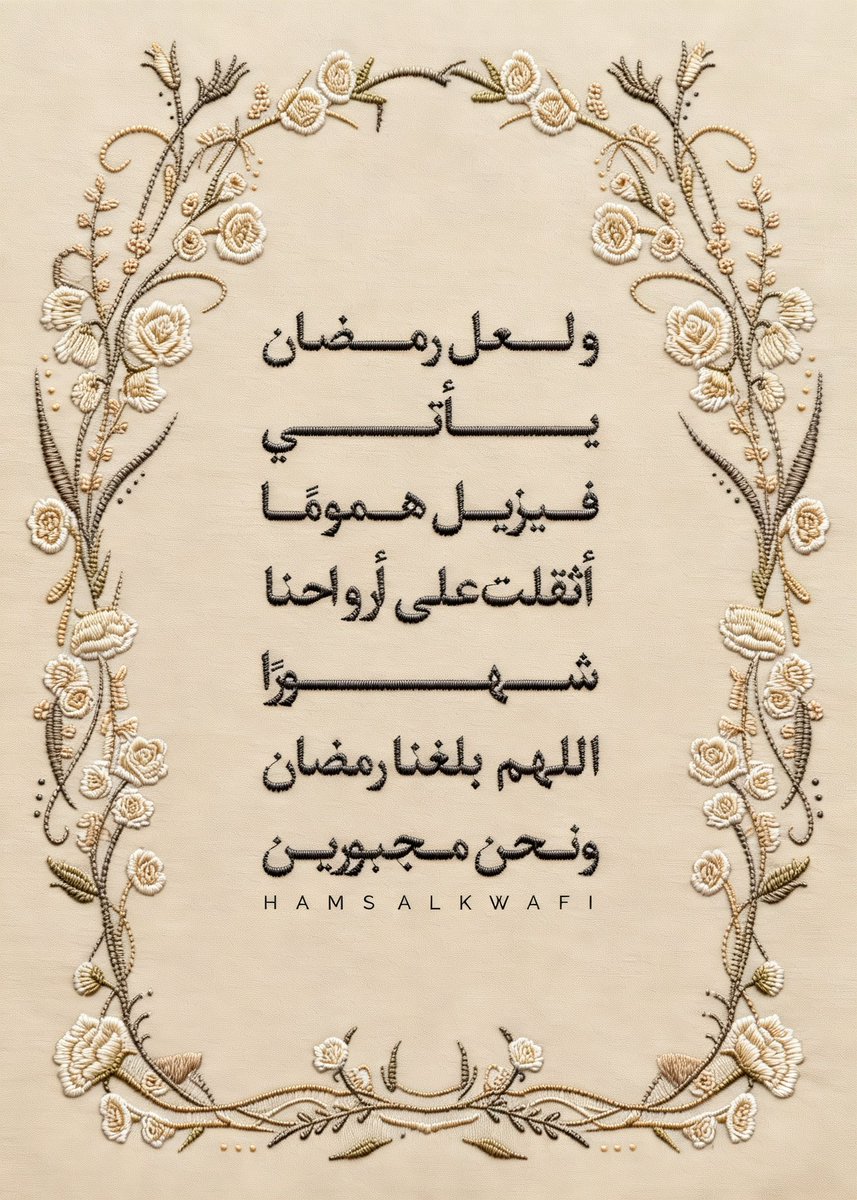 ولعل رمضان
يأتي
فيزيل همومًا
أثقلت على أرواحنا
شهورًا
اللهم بلغنا رمضان
ونحن مجبورين
HAMSALKWAFI